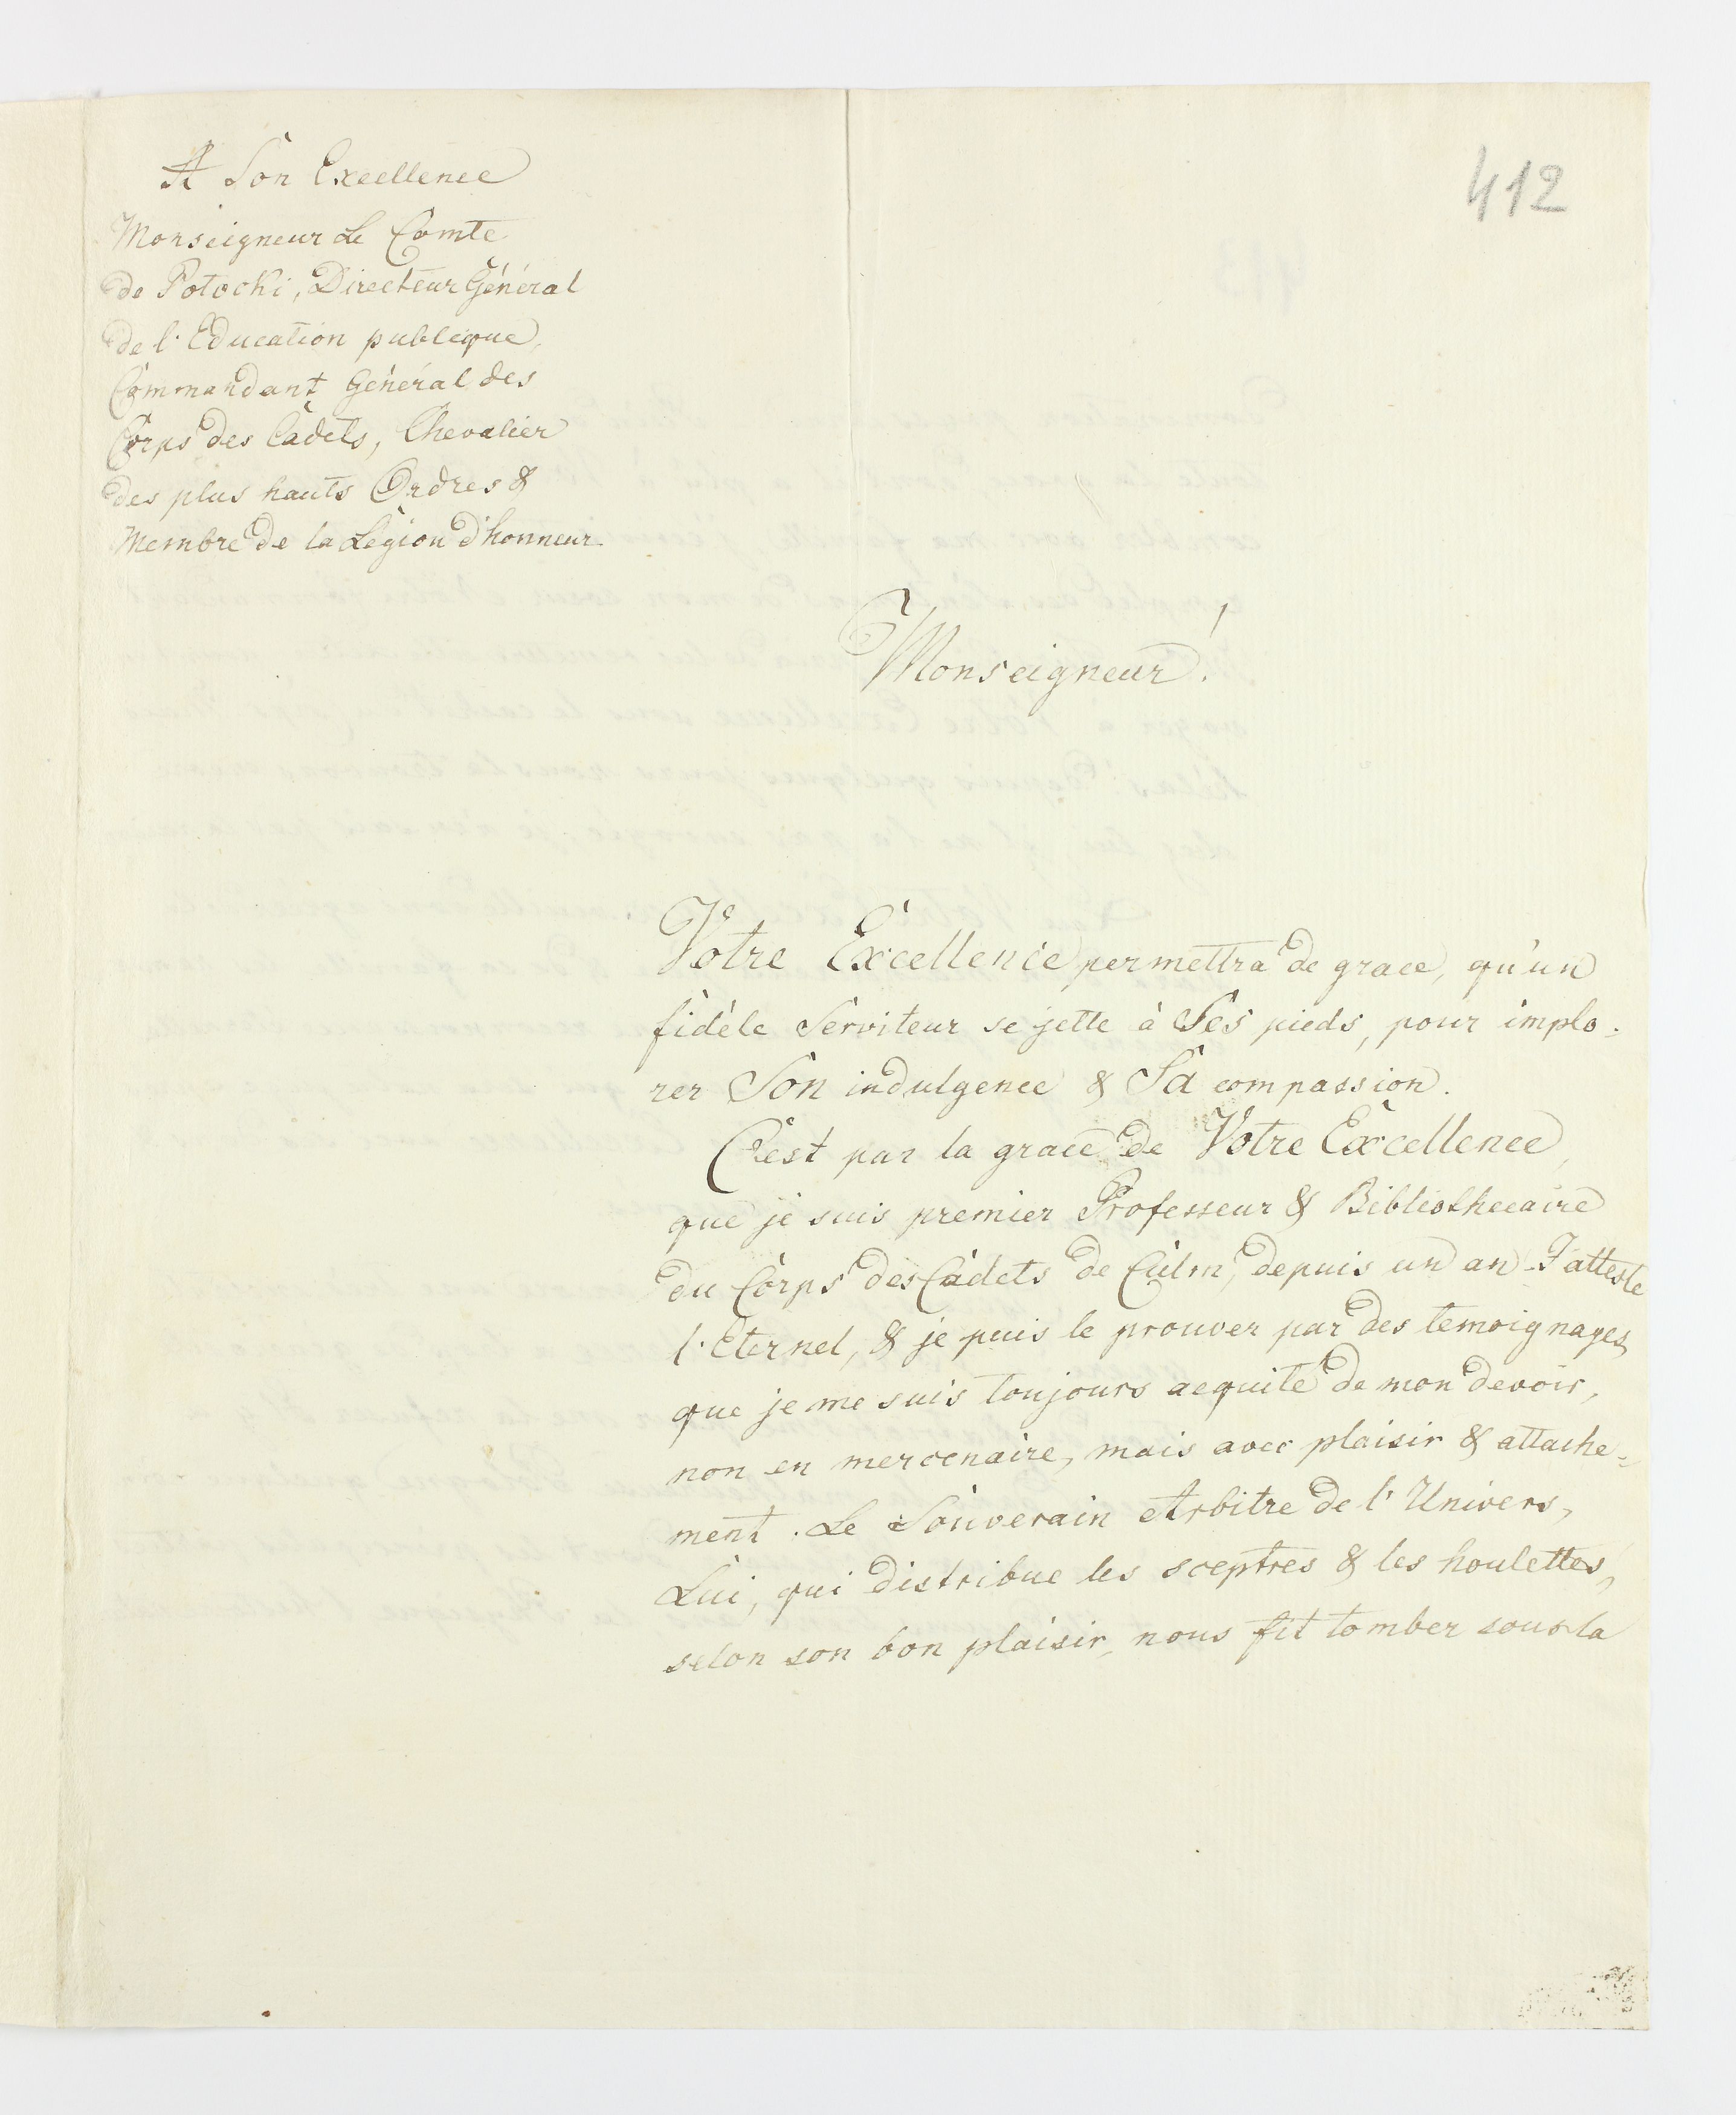 412
A Son Excellence
Monseigneur Le Comte
de Potocki, Directeur Général
de l'Education publique,
Commandant Général des
Corps des Cadets, Chevalier
des plus hauts Ordres &
Membre de la Légion d'honneur
Monseigneur!
Votre Excellence permettra de grace, qu'un
fidèle Serviteur se jette à Ses pieds, pour implo-
rer Son indulgence & Sa compassion.
C'est par la grace de Votre Excellence,
que je suis premier Professeur & Bibliothecaire
du Corps des Cadets de Culm, depuis un an - J'atteste
l'Eternel, & je puis le prouver par des temoignages
que je me suis toujours acquité de mon devoir,
non en mercenaire, mais avec plaisir & attache-
ment. Le Souverain Arbitre de l'Univers,
Lui, qui distribue les sceptres & les houlettes,
selon son bon plaisir, nous fit tomber sous la